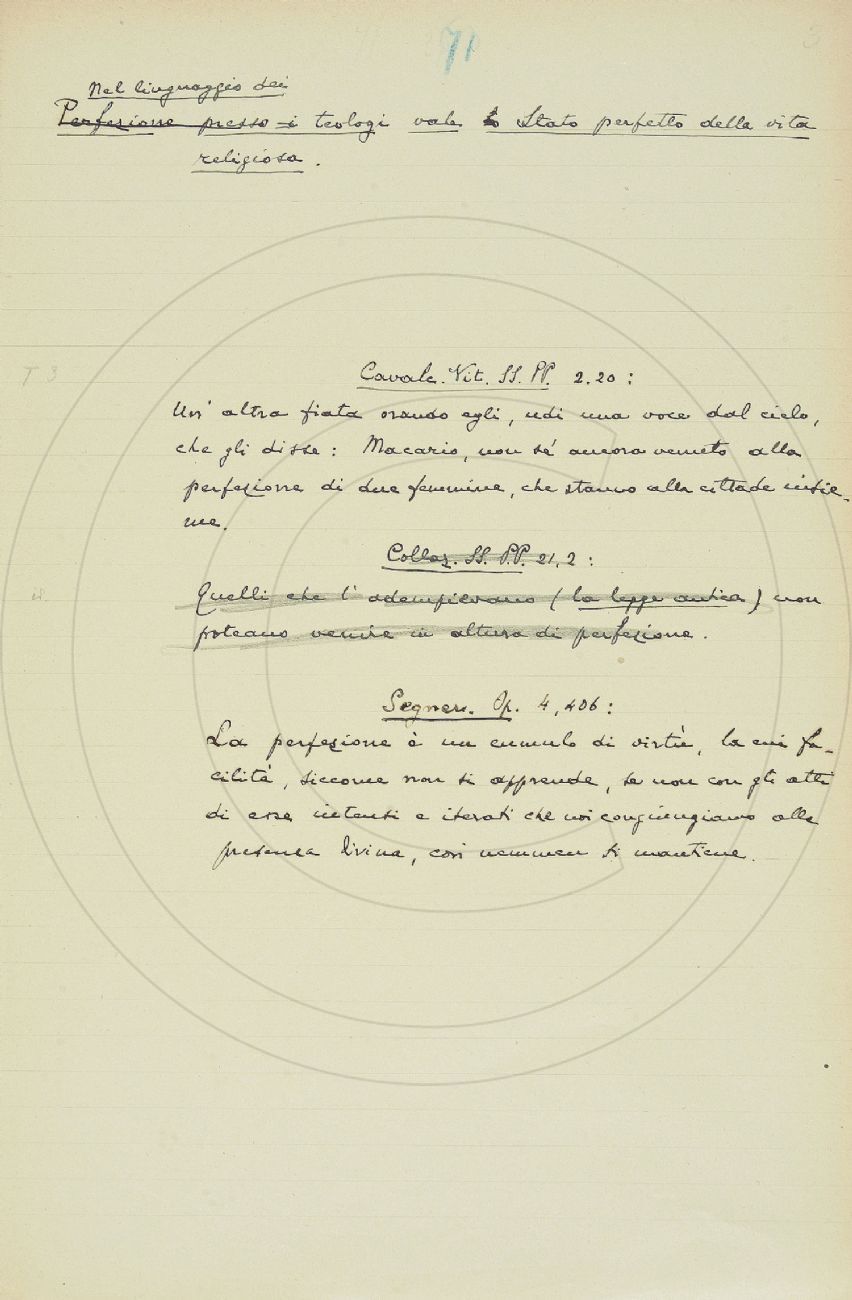 71
3
Nel linguaggio dei
Perfezione presso i teologi vale lo Stato perfetto della vita
religiosa.
T 3
Cavalc. Vit. SS. PP. 2.20:
Un' altra fiata orando egli, udì una voce dal cielo,
che gli disse: Macario, non sé ancora venuto alla
perfezione di due femmine, che stanno alla cittade insie-
me.
Collaz. SS. P.P. 21, 2:
Quelli che l' adempievano (la legge antica) non
poteano venire in altura di perfezione.
Segner. Op. 4, 406:
La perfezione è un cumulo di virtù, la cui fa-
cilità, siccome non si apprende, se non con gli atti
di esse intensi e iterati che noi congiungiamo alla
presenza divina, così nemmen si mantiene.